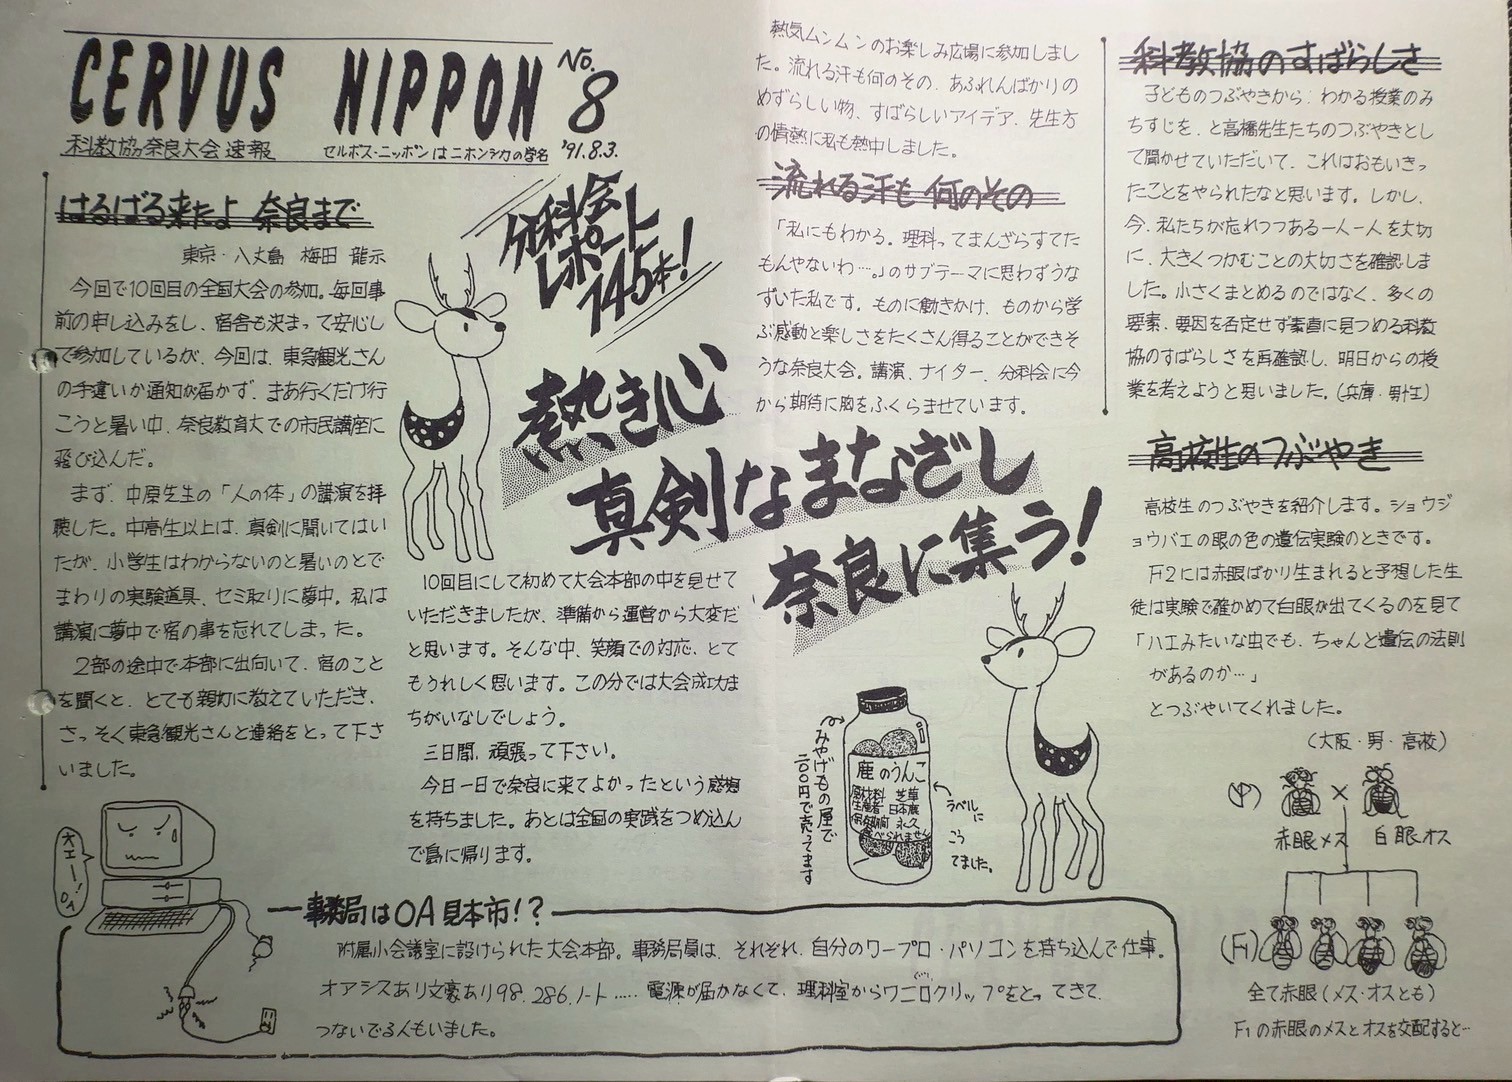 CERVUS NIPPON No. 8
科教協奈良大会速報 セルボス・ニッポンはニホンジカの学名 '91.8.3.
はるばる来たよ 奈良まで
東京・八丈島 梅田 龍示
今回で10回目の全国大会の参加。毎回事
前の申し込みをし、宿舎も決まって安心し
て参加しているが、今回は、東急観光さん
の手違いか通知が届かず、まあ行くだけ行
こうと暑い中、奈良教育大での市民講座に
飛び込んだ。
まず、中原先生の「人の体」の講演を拝
聴した。中高生以上は、真剣に聞いてはい
たが、小学生はわからないのと暑いのとで
まわりの実験道具、セミ取りに夢中。私は
講演に夢中で宿の事を忘れてしまった。
2部の途中で本部に出向いて、宿のこと
を聞くと、とても親切に教えていただき、
さっそく東急観光さんと連絡をとって下さ
いました。
分科会
レポート
145本!
熱き心
真剣なまなざし
奈良に集う!
10回目にして初めて大会本部の中を見せて
いただきましたが、準備から運営から大変だ
と思います。そんな中、笑顔での対応、とて
もうれしく思います。この分では大会成功ま
ちがいなしでしょう。
三日間、頑張って下さい。
今日一日で奈良に来てよかったという感想
を持ちました。あとは全国の実践をつめ込ん
で島に帰ります。
熱気ムンムンのお楽しみ広場に参加しまし
た。流れる汗も何のその、あふれんばかりの
めずらしい物、すばらしいアイデア、先生方
の情熱に私も熱中しました。
流れる汗も 何のその
「私にもわかる。理科ってまんざらすてた
もんやないわ…。」のサブテーマに思わずうな
ずいた私です。ものに働きかけ、ものから学
ぶ感動と楽しさをたくさん得ることができそ
うな奈良大会。講演、ナイター、分科会に今
から期待に胸をふくらませています。
科教協のすばらしさ
子どものつぶやきから、わかる授業のみ
ちすじを、と高橋先生たちのつぶやきとし
て聞かせていただいて、これはおもいきっ
たことをやられたなと思います。しかし、
今、私たちが忘れつつある一人一人を大切
に、大きくつかむことの大切さを確認しま
した。小さくまとめるのではなく、多くの
要素、要因を否定せず素直に見つめる科教
協のすばらしさを再確認し、明日からの授
業を考えようと思いました。(兵庫・男性)
高校生のつぶやき
高校生のつぶやきを紹介します。ショウジ
ョウバエの眼の色の遺伝実験のときです。
F2には赤眼ばかり生まれると予想した生
徒は実験で確かめて白眼が出てくるのを見て
「ハエみたいな虫でも、ちゃんと遺伝の法則
があるのか…」
とつぶやいてくれました。
(大阪・男・高校)
(P) ×
赤眼メス 白眼オス
(F1)
全て赤眼(メス・オスとも)
F1の赤眼のメスとオスを交配すると…
みやげもの屋で
二〇〇円で売ってます
鹿のうんこ
原材料 芝草
生産者 日本鹿
保存期間 永久
食べられません
ラベルに
こう
てました。
オエー!
事務局はOA見本市!?
附属小会議室に設けられた大会本部。事務局員は、それぞれ、自分のワープロ・パソコンを持ち込んで仕事。
オアシスあり文豪あり98、286、ノート…… 電源が届かなくて、理科室からワニ口クリップをとってきて、
つないでる人もいました。